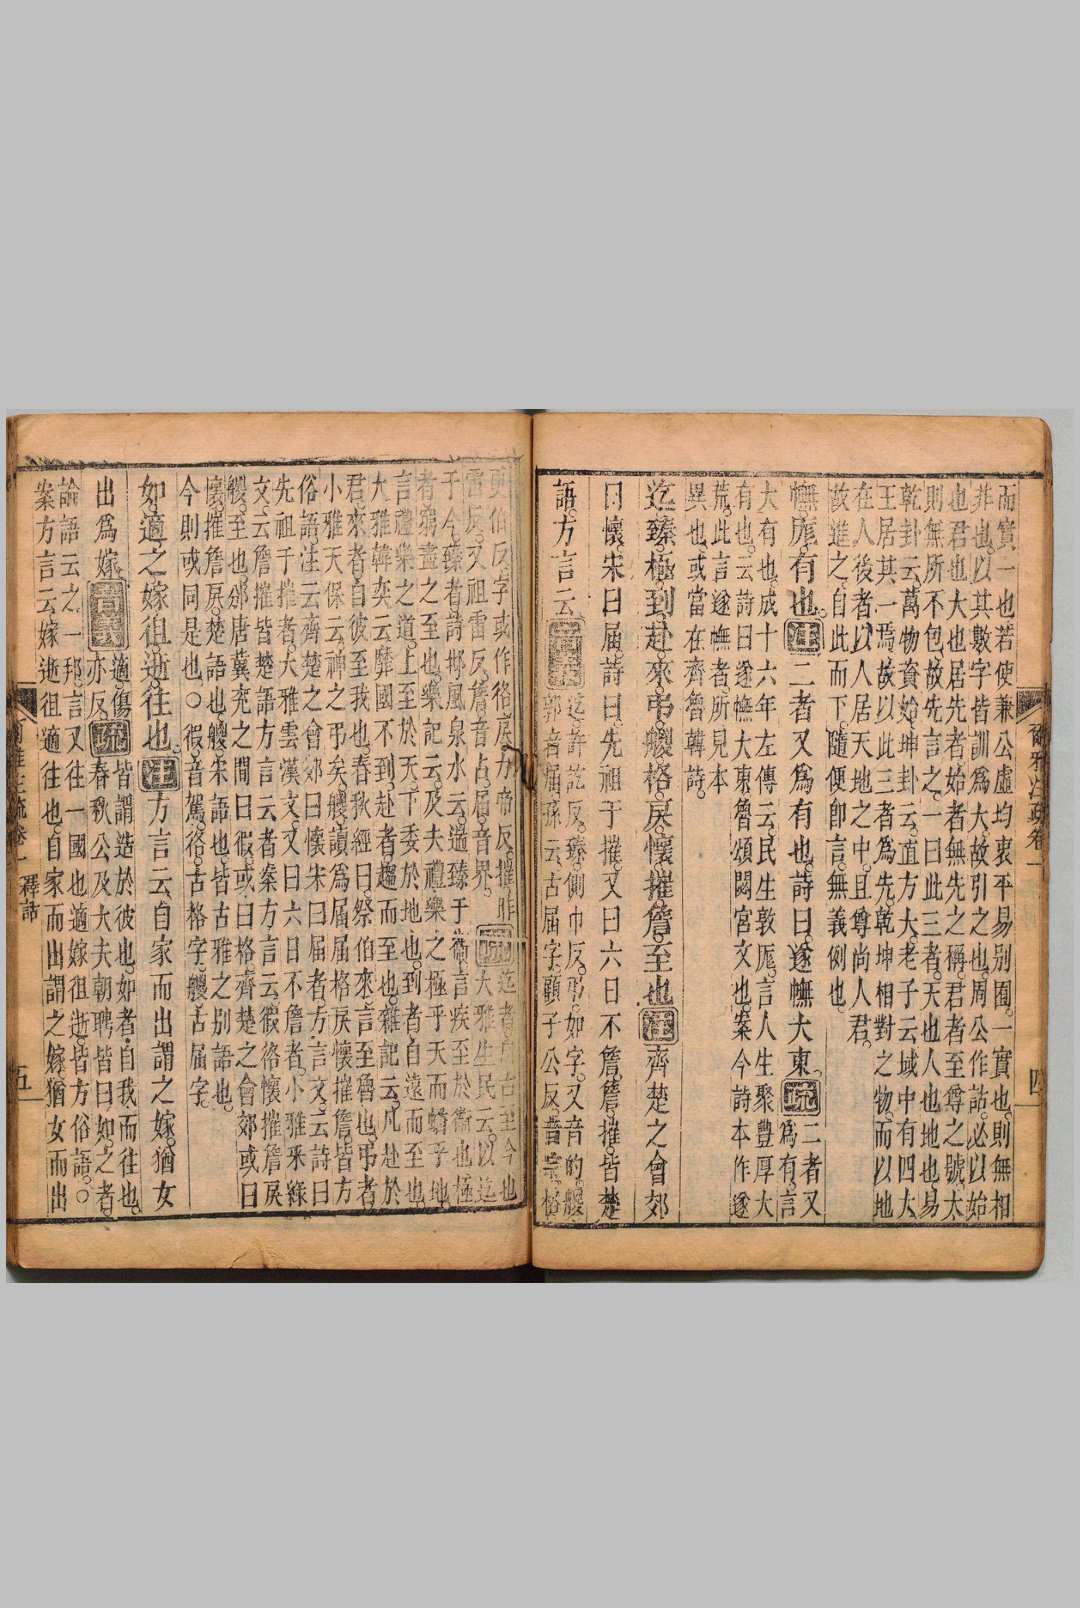 而實一也若使兼公虛均衷平易別囿一實也則無相
非也以其數字皆訓為大故引之也周公作詁必以始
也君也大也居先者始者無先之稱君者至尊之號大
則無所不包故先言之一曰此三者天也人也地也易
乾卦云萬物資始坤卦云直方大老子云域中有四大
王居其一焉故以此三者為先乾坤相對之物而以地
在人後者以人居天地之中且尊尚人君
故進之自此而下隨便即言無義例也
幠厖有也注二者又為有也詩曰遂幠大東疏二者又
為有言
大有也成十六年左傳云民生敦厖言人生聚豐厚大
有也云詩曰遂幠大東魯頌閟宮文也案今詩本作遂
荒此言遂幠者所見本
異也或當在齊魯韓詩
迄臻極到赴來弔艐格戾懷摧詹至也注齊楚之會郊
曰懷宋曰屆詩曰先祖于摧又曰六日不詹詹摧皆楚
語方言云音義迄許訖反臻側巾反弔如字又音的艐
郭音屆孫云古屆字顧子公反音宗格
更伯反字或作𢓜戾力帝反摧昨
雷反又祖雷反詹音占屆音界疏迄者自古至今也
大雅生民云以迄
于今臻者詩邶風泉水云遄臻于衞言疾至於衞也極
者窮盡之至也樂記云及夫禮樂之極乎天而蟠乎地
言禮樂之道上至於天下委於地也到者自遠而至也
大雅韓奕云靡國不到赴者趨而至也雜記云凡赴於
君來者自彼至我也春秋經曰祭伯來言至魯也弔者
小雅天保云神之弔矣艐讀為屆屆格戾懷摧詹皆方
俗語注云齊楚之會郊曰懷宋曰屆者方言文云詩曰
先祖于摧者大雅雲漢文又曰六日不詹者小雅采綠
文云詹摧皆楚語方言云者案方言云徦𢓜懷摧詹戾
艐至也邠唐冀兖之間曰徦或曰𢓜齊楚之會郊或曰
懷摧詹戾楚語也艐宋語也皆古雅之別語也
今則或同是也○徦音駕𢓜古格字艐古屆字
如適之嫁徂逝往也注方言云自家而出謂之嫁猶女
出為嫁音義適傷
亦反疏皆謂造於彼也如者自我而往也
春秋公及大夫朝聘皆曰如之者
論語云之一邦言又往一國也適嫁徂逝皆方俗語○
案方言云嫁逝徂適往也自家而出謂之嫁猶女而出
爾雅注疏卷一
四
爾雅注疏卷一
釋詁
五